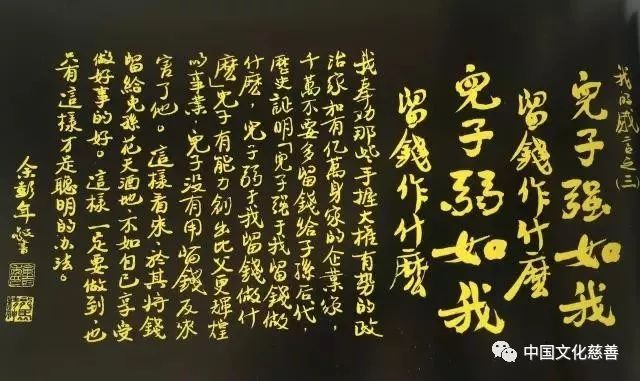 我的感言之(三)
兒子强如我
留錢作什麽
兒子弱如我
留錢作什麽
我奉劝那些手握大權有势的政
治家和有亿萬身家的企業家，
千萬不要多留錢给子孫后代，
歷史証明「兒子强于我留錢做
什麽，兒子弱于我留錢做什
麽」兒子有能力創出比父更輝煌
的事業，兒子没有用留錢反來
害了他。這樣看來，於其将錢
留給兒孫花天酒地不如自已享受
做好事的好。這樣一定要做到，也
只有這樣才是聰明的办法。
余彭年敬書
中国文化慈善